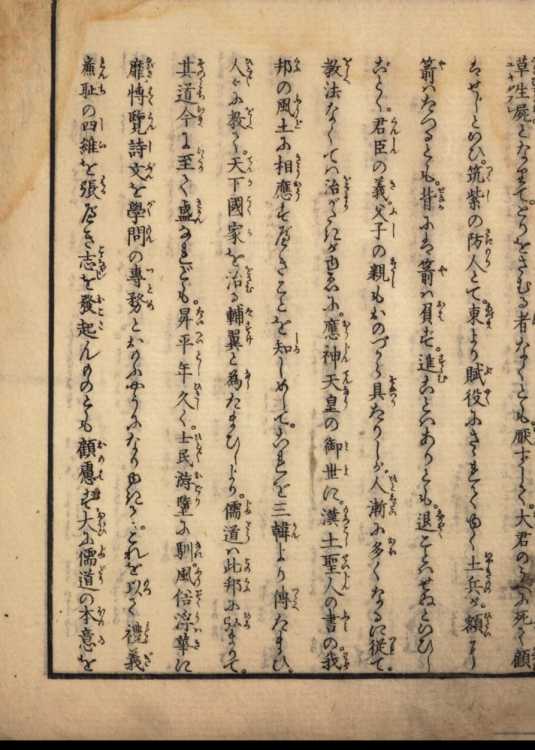 草生屍となりてとりをさむる者なくとも厭ずして大君のみかに死て顧
はせじといひ。筑紫の防人とて。東より賦役にさゝれてゆく土兵が。額より
箭はたつるとも。背には箭は負ず。進ことはありとも。退ことはせねといひし
ごとく。君臣の義。父子の親もおのづから具たりしが。人漸に多くなるに従て。
教法なくては治がたきがゆゑに。應神天皇の御世に。漢土聖人の書の我
邦の風土に相應ずべきことを知しめして。これを三韓より傳たまひ。
人々に教て。天下國家を治る輔翼と為たまひしより。儒道は此邦に弘まりて。
其道今に至て盛なれども。昇平年久く。士民游墮に馴。風俗浮華に
靡。博覧詩文を學問の專務とおもふやうになりゆきぬ。これを以て禮義
廉恥の四維を張べき志を發起んものとも顧慮せず。大に儒道の本意を